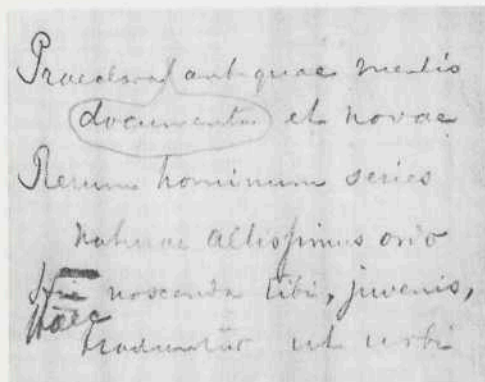 Praeclara antiquae mentis
documenta et novae
Rerum hominum series
naturae altissimus ordo
Hic noscenda tibi, juvenis,
Haec
traduntur ut urbi